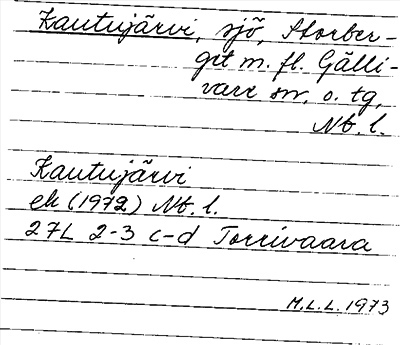 Kautujärvi, sjö, Storber-
get m. fl. Gälli-
vare sn. o. tg.
Nb. l.
Kautujärvi
ek (1972) Nb. l.
27L 2-3 c-d Torrivaara
M.L.L. 1973